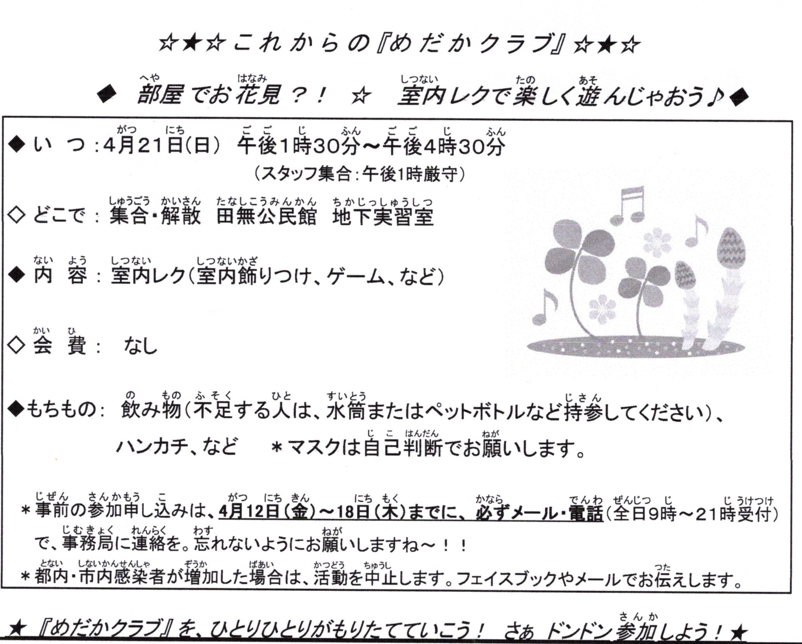 ☆★☆これからの『めだかクラブ』☆★☆
◆ 部屋でお花見？！ ☆ 室内レクで楽しく遊んじゃおう♪◆
◆い つ：4月21日（日） 午後1時30分～午後4時30分
（スタッフ集合：午後1時厳守）
◇どこで：集合・解散 田無公民館 地下実習室
◆内 容：室内レク（室内飾りつけ、ゲーム、など）
◇会 費： なし
◆もちもの： 飲み物（不足する人は、水筒またはペットボトルなど持参してください）、
ハンカチ、など ＊マスクは自己判断でお願いします。
＊事前の参加申し込みは、4月12日（金）～18日（木）までに、必ずメール・電話（全日9時～21時受付）
で、事務局に連絡を。忘れないようにお願いしますね～！！
＊都内・市内感染者が増加した場合は、活動を中止します。フェイスブックやメールでお伝えします。
★『めだかクラブ』を、ひとりひとりがもりたてていこう！ さぁ ドンドン参加しよう！★